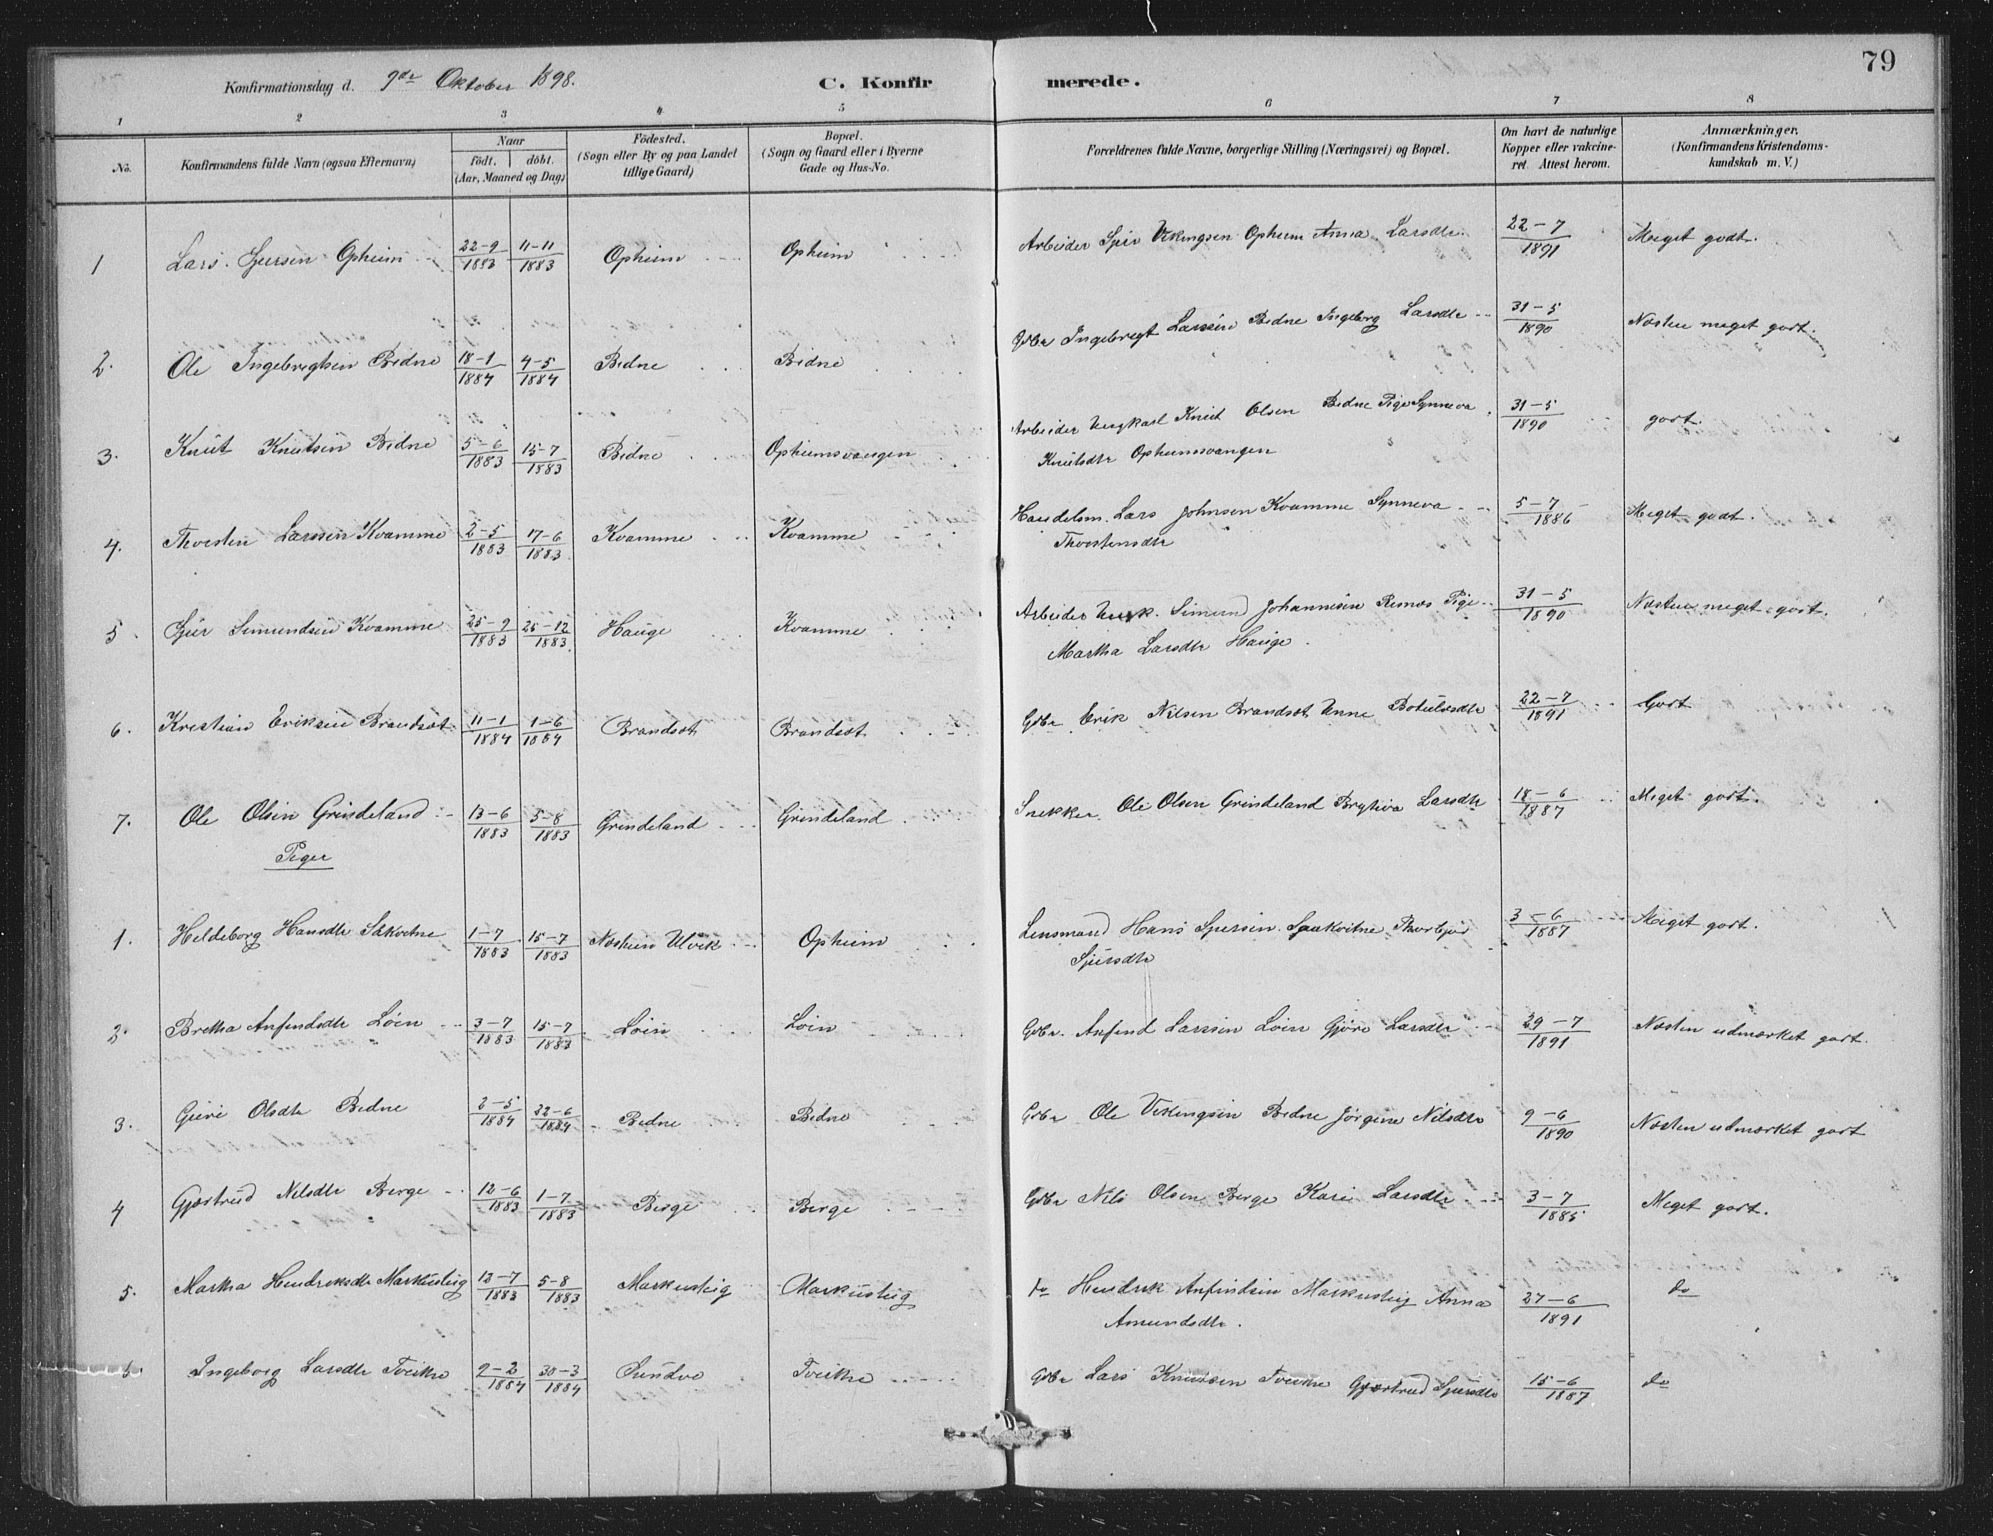 79
Konfirmationsdag d. 9de Oktober 1898. C. Konfirmerede.
1 2 3 4 5 6 7 8
No. Konfirmandens fulde Navn (ogsaa Efternavn) Naar födt. döbt. (Aar, Maaned og Dag) Födested. (Sogn eller By og paa Landet tillige Gaard) Bopæl. (Sogn og Gaard eller i Byerne Gade og Hus-No. Forældrenes fulde Navne, borgerlige Stilling (Næringsvei) og Bopæl. Om havt de naturlige Kopper eller vakcineret. Attest herom. Anmærkninger. (Konfirmandens Kristendomskundskab m. V.)
1 Lars Sjursen Opheim 22-9 1883 11-11 1883 Opheim Opheim Arbeider Sjur Vikingsen Opheim Anna Larsdtr 22-7 1891 Meget godt.
2. Ole Ingebregtsen Bidne 18-1 1884 4-5 1884 Bidne Bidne Gdbr Ingebregt Larssen Bidne Ingeborg Larsdtr 31-5 1890 Næsten meget godt.
3. Knut Knutsen Bidne 5-6 1883 15-7 1883 Bidne Opheimsvangen Arbeider Ungkarl Knut Olsen Bidne Pige Synneva 31-5 1890 godt.
Knutsdtr Opheimsvangen
4. Thorsten Larssen Kvamme 2-5 1883 17-6 1883 Kvamme Kvamme Handelsm. Lars Johnsen Kvamme Synneva 5-7 1886 Meget godt.
Thorstensdtr
5. Sjur Simundsen Kvamme 25-9 1883 26-12 1883 Hauge Kvamme Arbeider Ungk. Simund Johannesen Resnæs Pige 31-5 1890 Næsten meget godt.
Martha Larsdtr Hauge.
6. Kristian Eriksen Brandsæt 11-1 1884 1-6 1884 Brandsæt Brandsæt Gdbr Erik Nilsen Brandsæt Anne Botulvsdtr 22-7 1891 Godt
7. Ole Olsen Grindeland 13-6 1883 5-8 1883 Grindeland Grindeland Snekker Ole Olsen Grindeland Brythva Larsdtr 18-6 1887 Meget godt.
Piger
1. Hildeborg Hansdtr Sækvitne 1-7 1883 15-7 1883 Næsheim Ulvik Opheim Lensmand Hans Sjursen Saakvitne Thorbjør 3-6 1887 Meget godt.
Sjursdtr
2. Bretha Anfindsdtr Løen 3-7 1883 15-7 1883 Løin Løin Gdbr. Anfind Larssen Løin Gjøre Larsdtr 29-7 1891 Næsten udmærket godt.
3. Guri Olsdtr Bidne 2-5 1884 22-6 1884 Bidne Bidne Gdbr Ole Vikingsen Bidne Jørgine Nilsdtr 9-6 1890 Næsten udmærket godt
4 Gjærtrud Nilsdtr Berge 12-6 1883 1-7 1883 Berge Berge Gdbr Nils Olsen Berge Kari Larsdtr 3-7 1885 Meget godt.
5. Martha Hendriksdtr Markusteig 13-7 1883 5-8 1883 Markusteig Markusteig do Hendrik Anfindsen Markusteig Anna 27-6 1891 do
Amundsdtr.
6. Ingeborg Larsdtr Tveithe 9-2 1884 30-3 1884 Sundve Tveithe Gdbr Lars Knutsen Tveithe Gjærtrud Sjursdtr 15-6 1887 do